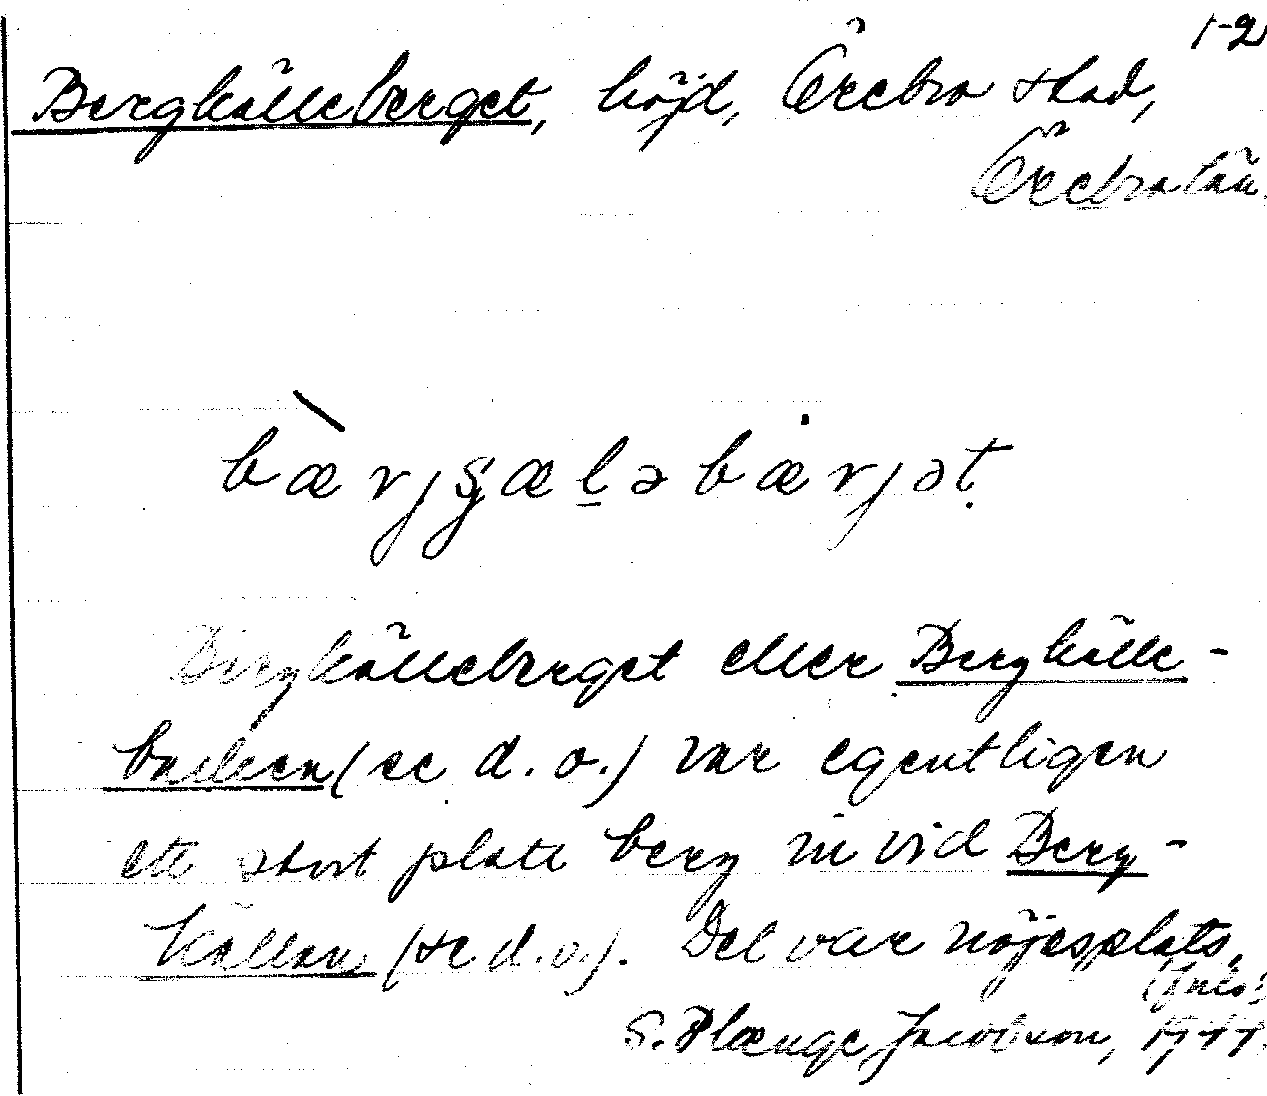 1-2
Bergkälleberget, höjd, Örebro stad,
Örebro län.
bærjʂæḷəbærjət.
Bergkälleberget eller Bergkälle-
backen (se d. o.) var egentligen
ett stort platt berg in vid Berg-
källan (se d. o.). Det var nöjesplats.
S. Plænge Jacobson, 1944.